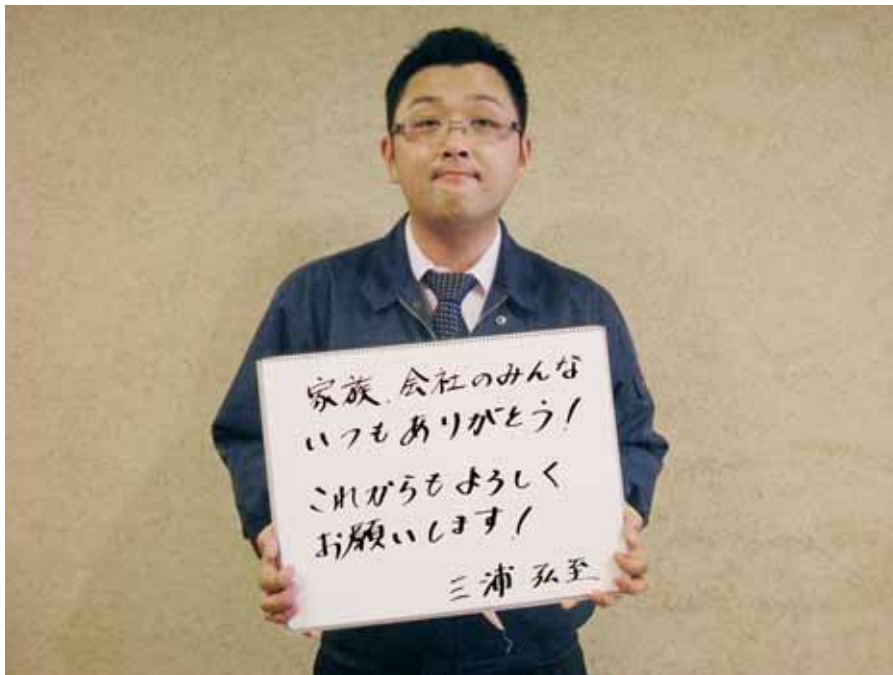 家族、会社のみんな
いつもありがとう!
これからもよろしく
お願いします!
三浦 弘至